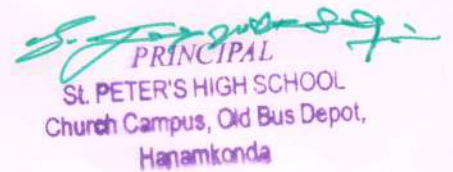 PRINCIPAL
St. PETER'S HIGH SCHOOL
Church Campus, Old Bus Depot,
Hanamkonda